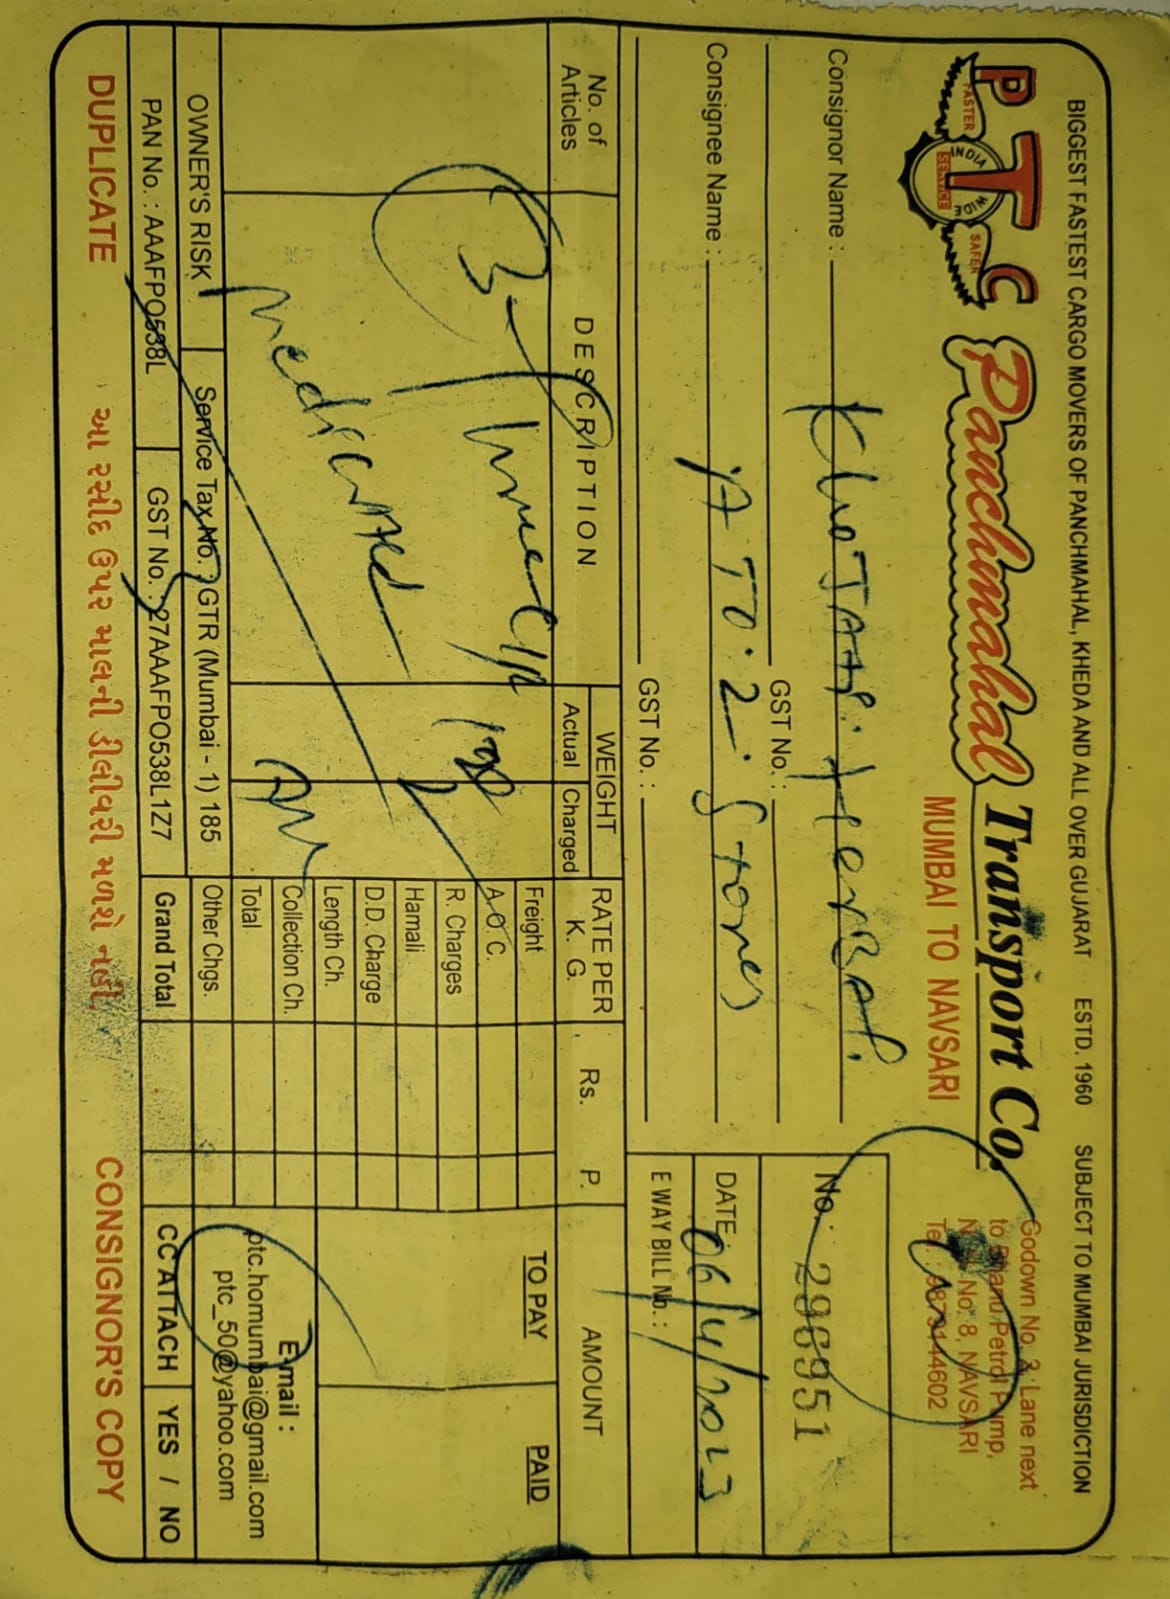 BIGGEST FASTEST CARGO MOVERS OF PANCHMAHAL, KHEDA AND ALL OVER GUJARAT ESTD. 1960 SUBJECT TO MUMBAI JURISDICTION
PTC
FASTER INDIA WIDE SERVICE SAFER
Panchmahal Transport Co.
MUMBAI TO NAVSARI
Godown No. 3, Lane next
to Petrol Pump,
No. 8, NAVSARI
Consignor Name :
GST No. :
No. : 296951
Consignee Name : A TO. Z. Stores
DATE : 06/4/2023
GST No. :
E WAY BILL No. :
No. of Articles
DESCRIPTION
WEIGHT
Actual Charged
RATE PER K. G.
Rs. P.
AMOUNT
3
Freight
TO PAY
PAID
A.O.C.
R. Charges
Hamali
D.D. Charge
Length Ch.
Collection Ch.
Total
Other Chgs.
Grand Total
E-mail :
ptc.homumbai@gmail.com
ptc_50@yahoo.com
OWNER'S RISK
Service Tax No. : GTR (Mumbai - 1) 185
PAN No. : AAAFPO538L
GST No. : 27AAAFPO538L1Z7
CC ATTACH YES / NO
DUPLICATE
આ રસીદ ઉપર માલની ડીલીવરી મળશે નહી.
CONSIGNOR'S COPY